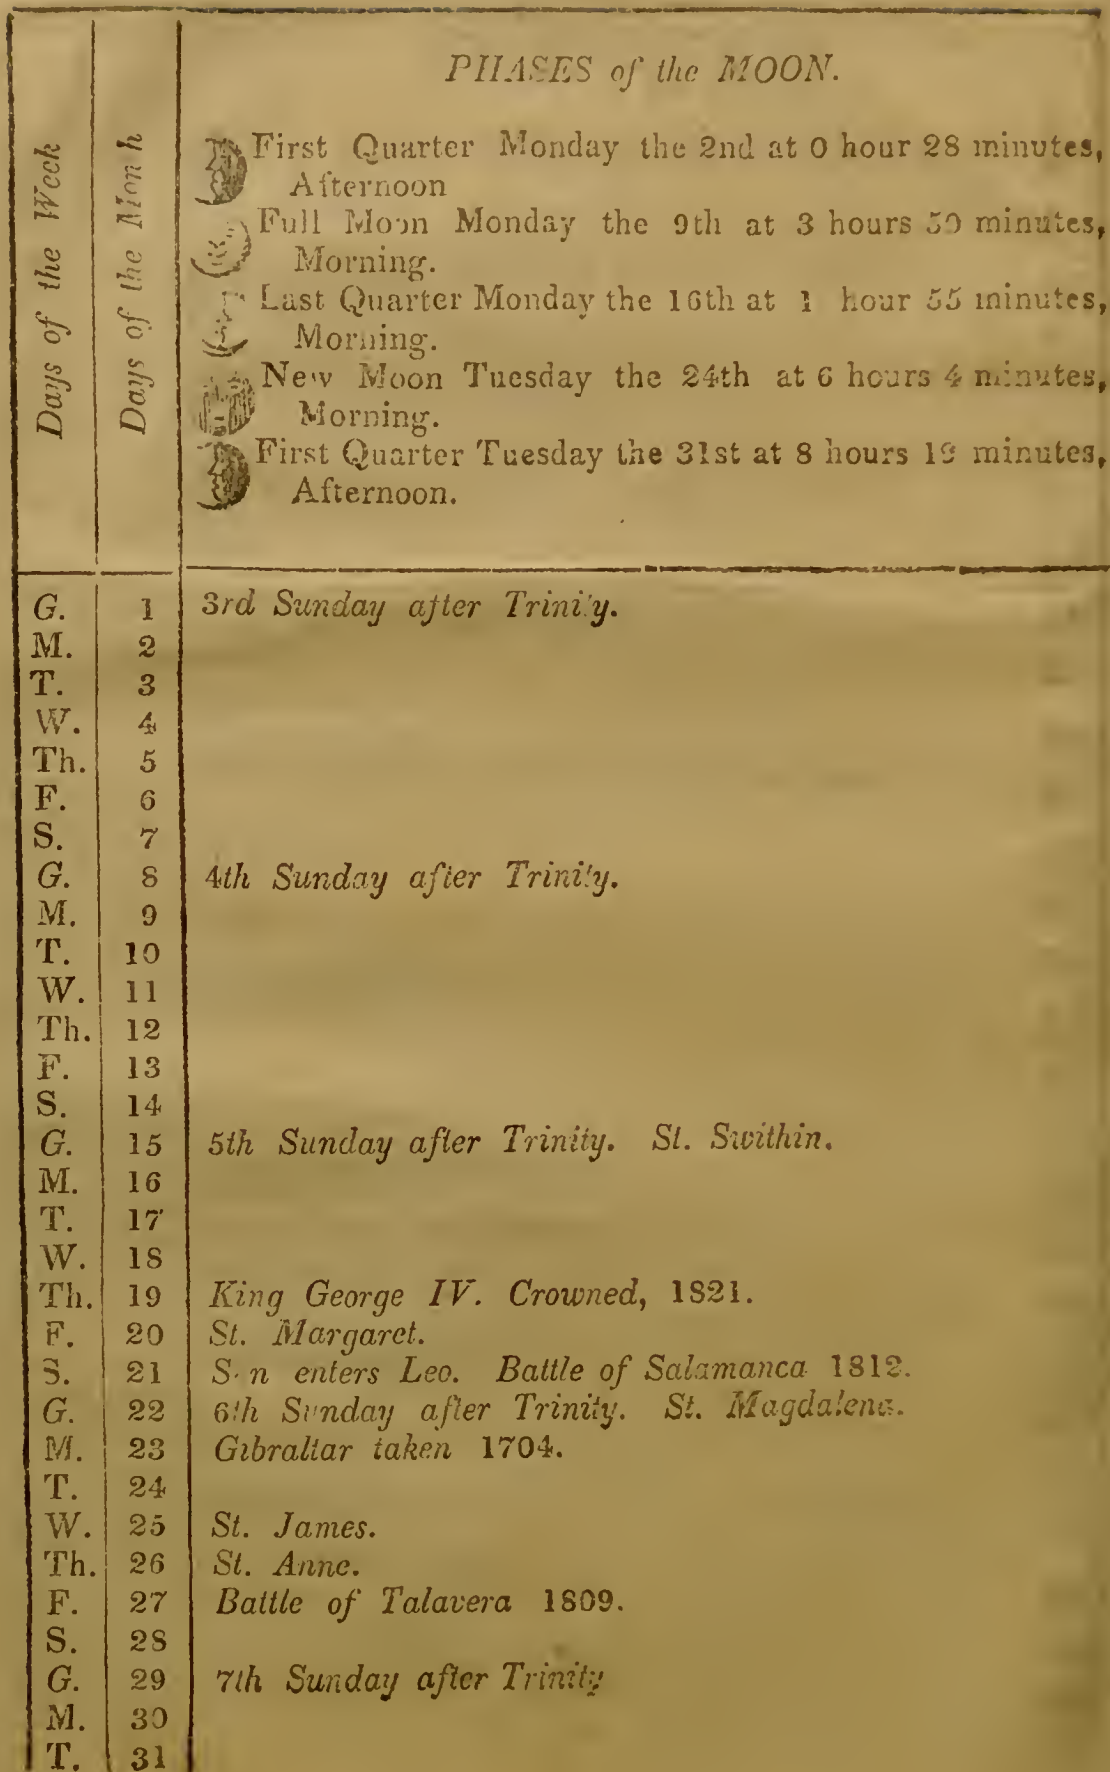 PHASES of the MOON.
Days of the Week
Days of the Mon h
First Quarter Monday the 2nd at 0 hour 28 minutes,
Afternoon
Full Moon Monday the 9th at 3 hours minutes,
Morning.
Last Quarter Monday the 16th at 1 hour 55 minutes,
Morning.
New Moon Tuesday the 24th at 6 hours 4 minutes,
Morning.
First Quarter Tuesday the 31st at 8 hours minutes,
Afternoon.
G. 1 3rd Sunday after Trinity.
M. 2
T. 3
W. 4
Th. 5
F. 6
S. 7
G. 8 4th Sunday after Trinity.
M. 9
T. 10
W. 11
Th. 12
F. 13
S. 14
G. 15 5th Sunday after Trinity. St. Swithin.
M. 16
T. 17
W. 18
Th. 19 King George IV. Crowned, 1821.
F. 20 St. Margaret.
S. 21 S n enters Leo. Battle of Salamanca 1812.
G. 22 6th Sunday after Trinity. St. Magdalena.
M. 23 Gibraltar taken 1704.
T. 24
W. 25 St. James.
Th. 26 St. Anne.
F. 27 Battle of Talavera 1809.
S. 28
G. 29 7th Sunday after Trinity
M. 30
T. 31